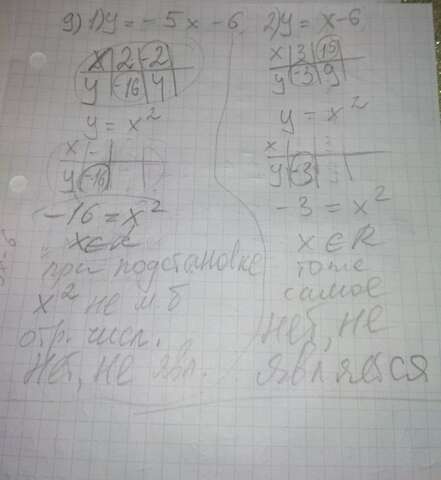 9) 1) y = -5x - 6
x | 2 | -2
y | -16 | 4
y = x²
x | - |
y | -16 |
-16 = x²
при подстановке
x² не м.б
отр. числ.
Нет, не явл.
2) y = x - 6
x | 3 | 15
y | -3 | 9
y = x²
x |
y | -3 |
-3 = x²
x ∈ R
тоже
самое
Нет, не
является